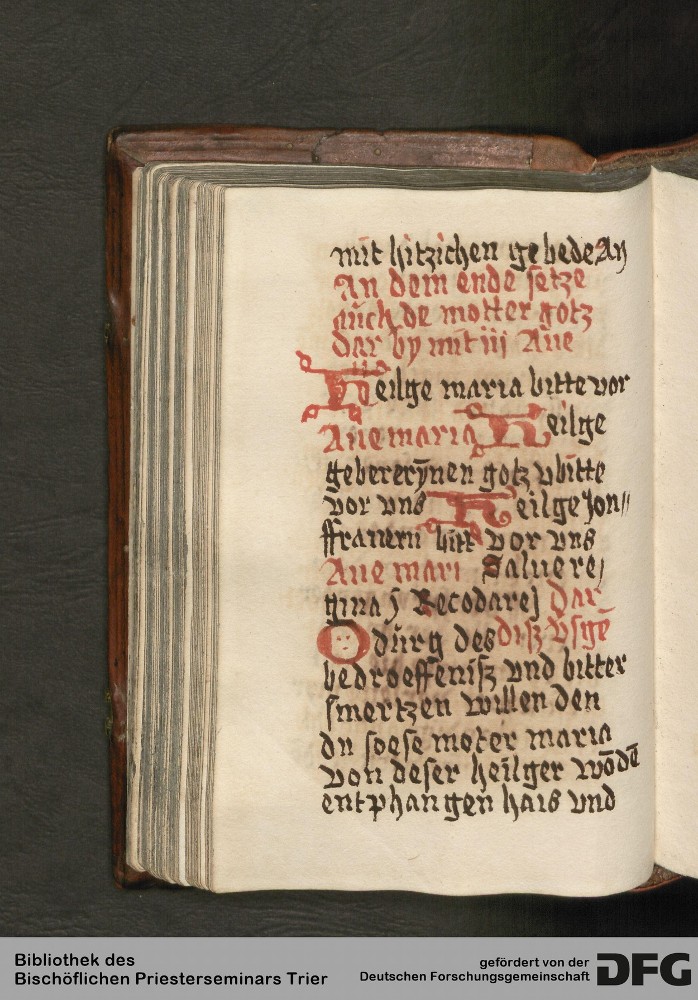 mit hitzichen gebede An
An dem ende setze
auch de motter gotz
dar by mit iii Aue
Heilge maria bitte vor
Aue maria Heilge
gebererynen gotz vbitte
vor vns Heilge Jon〃
ffrauem bitt vor vns
Aue mari Salue re/
gina Recodare Dar
O durg des diß vsgē
bedroeffeniß vnd bitter
smertzen willen den
du soese moter maria
von deser heilger wōdē
entphangen hais vnd
Bibliothek des
Bischöflichen Priesterseminars Trier
gefördert von der
Deutschen Forschungsgemeinschaft
DFG